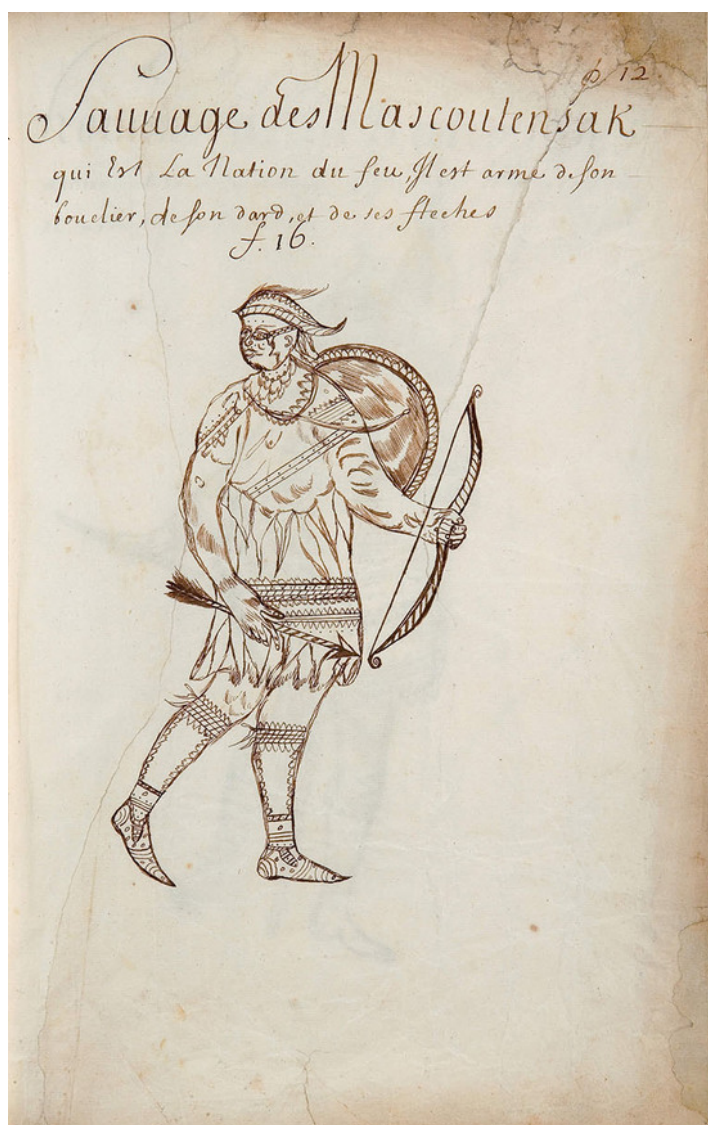 p 12.
Sauuage des Mascoutensak
qui Est La Nation du feu, Il est armé de son
bouclier, de son dard, et de ses fleches
f. 16.